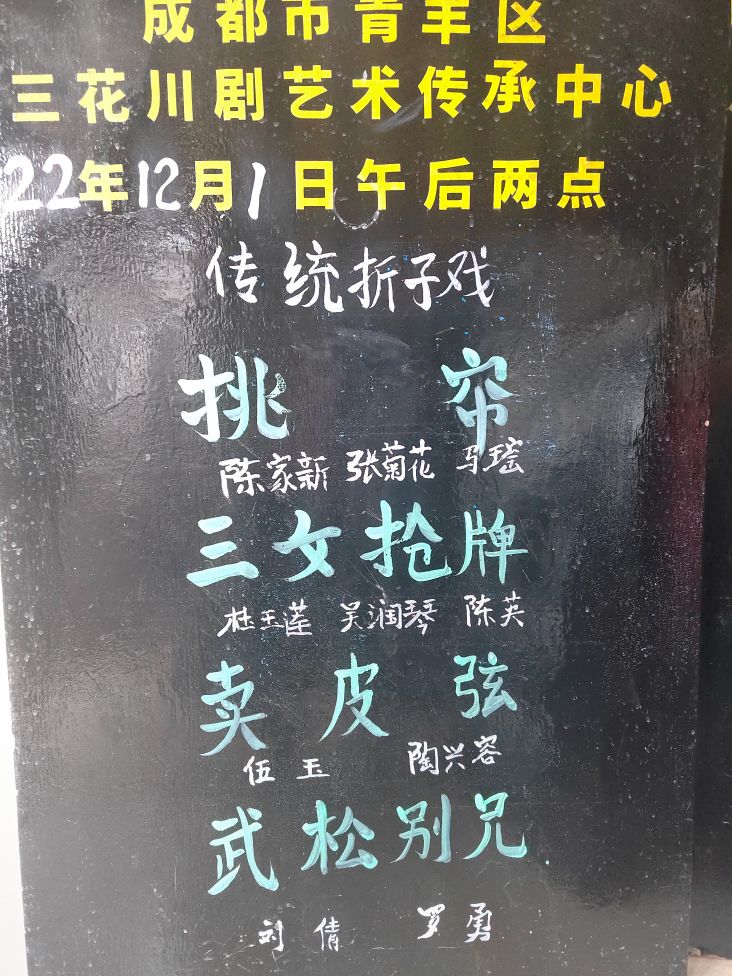 成都市青羊区
三花川剧艺术传承中心
22年12月1日午后两点
传统折子戏
挑帘
陈家新 张菊花 马瑶
三女抢牌
桂玉莲 吴润琴 陈英
卖皮弦
伍玉 陶兴容
武松别兄
刘倩 罗勇